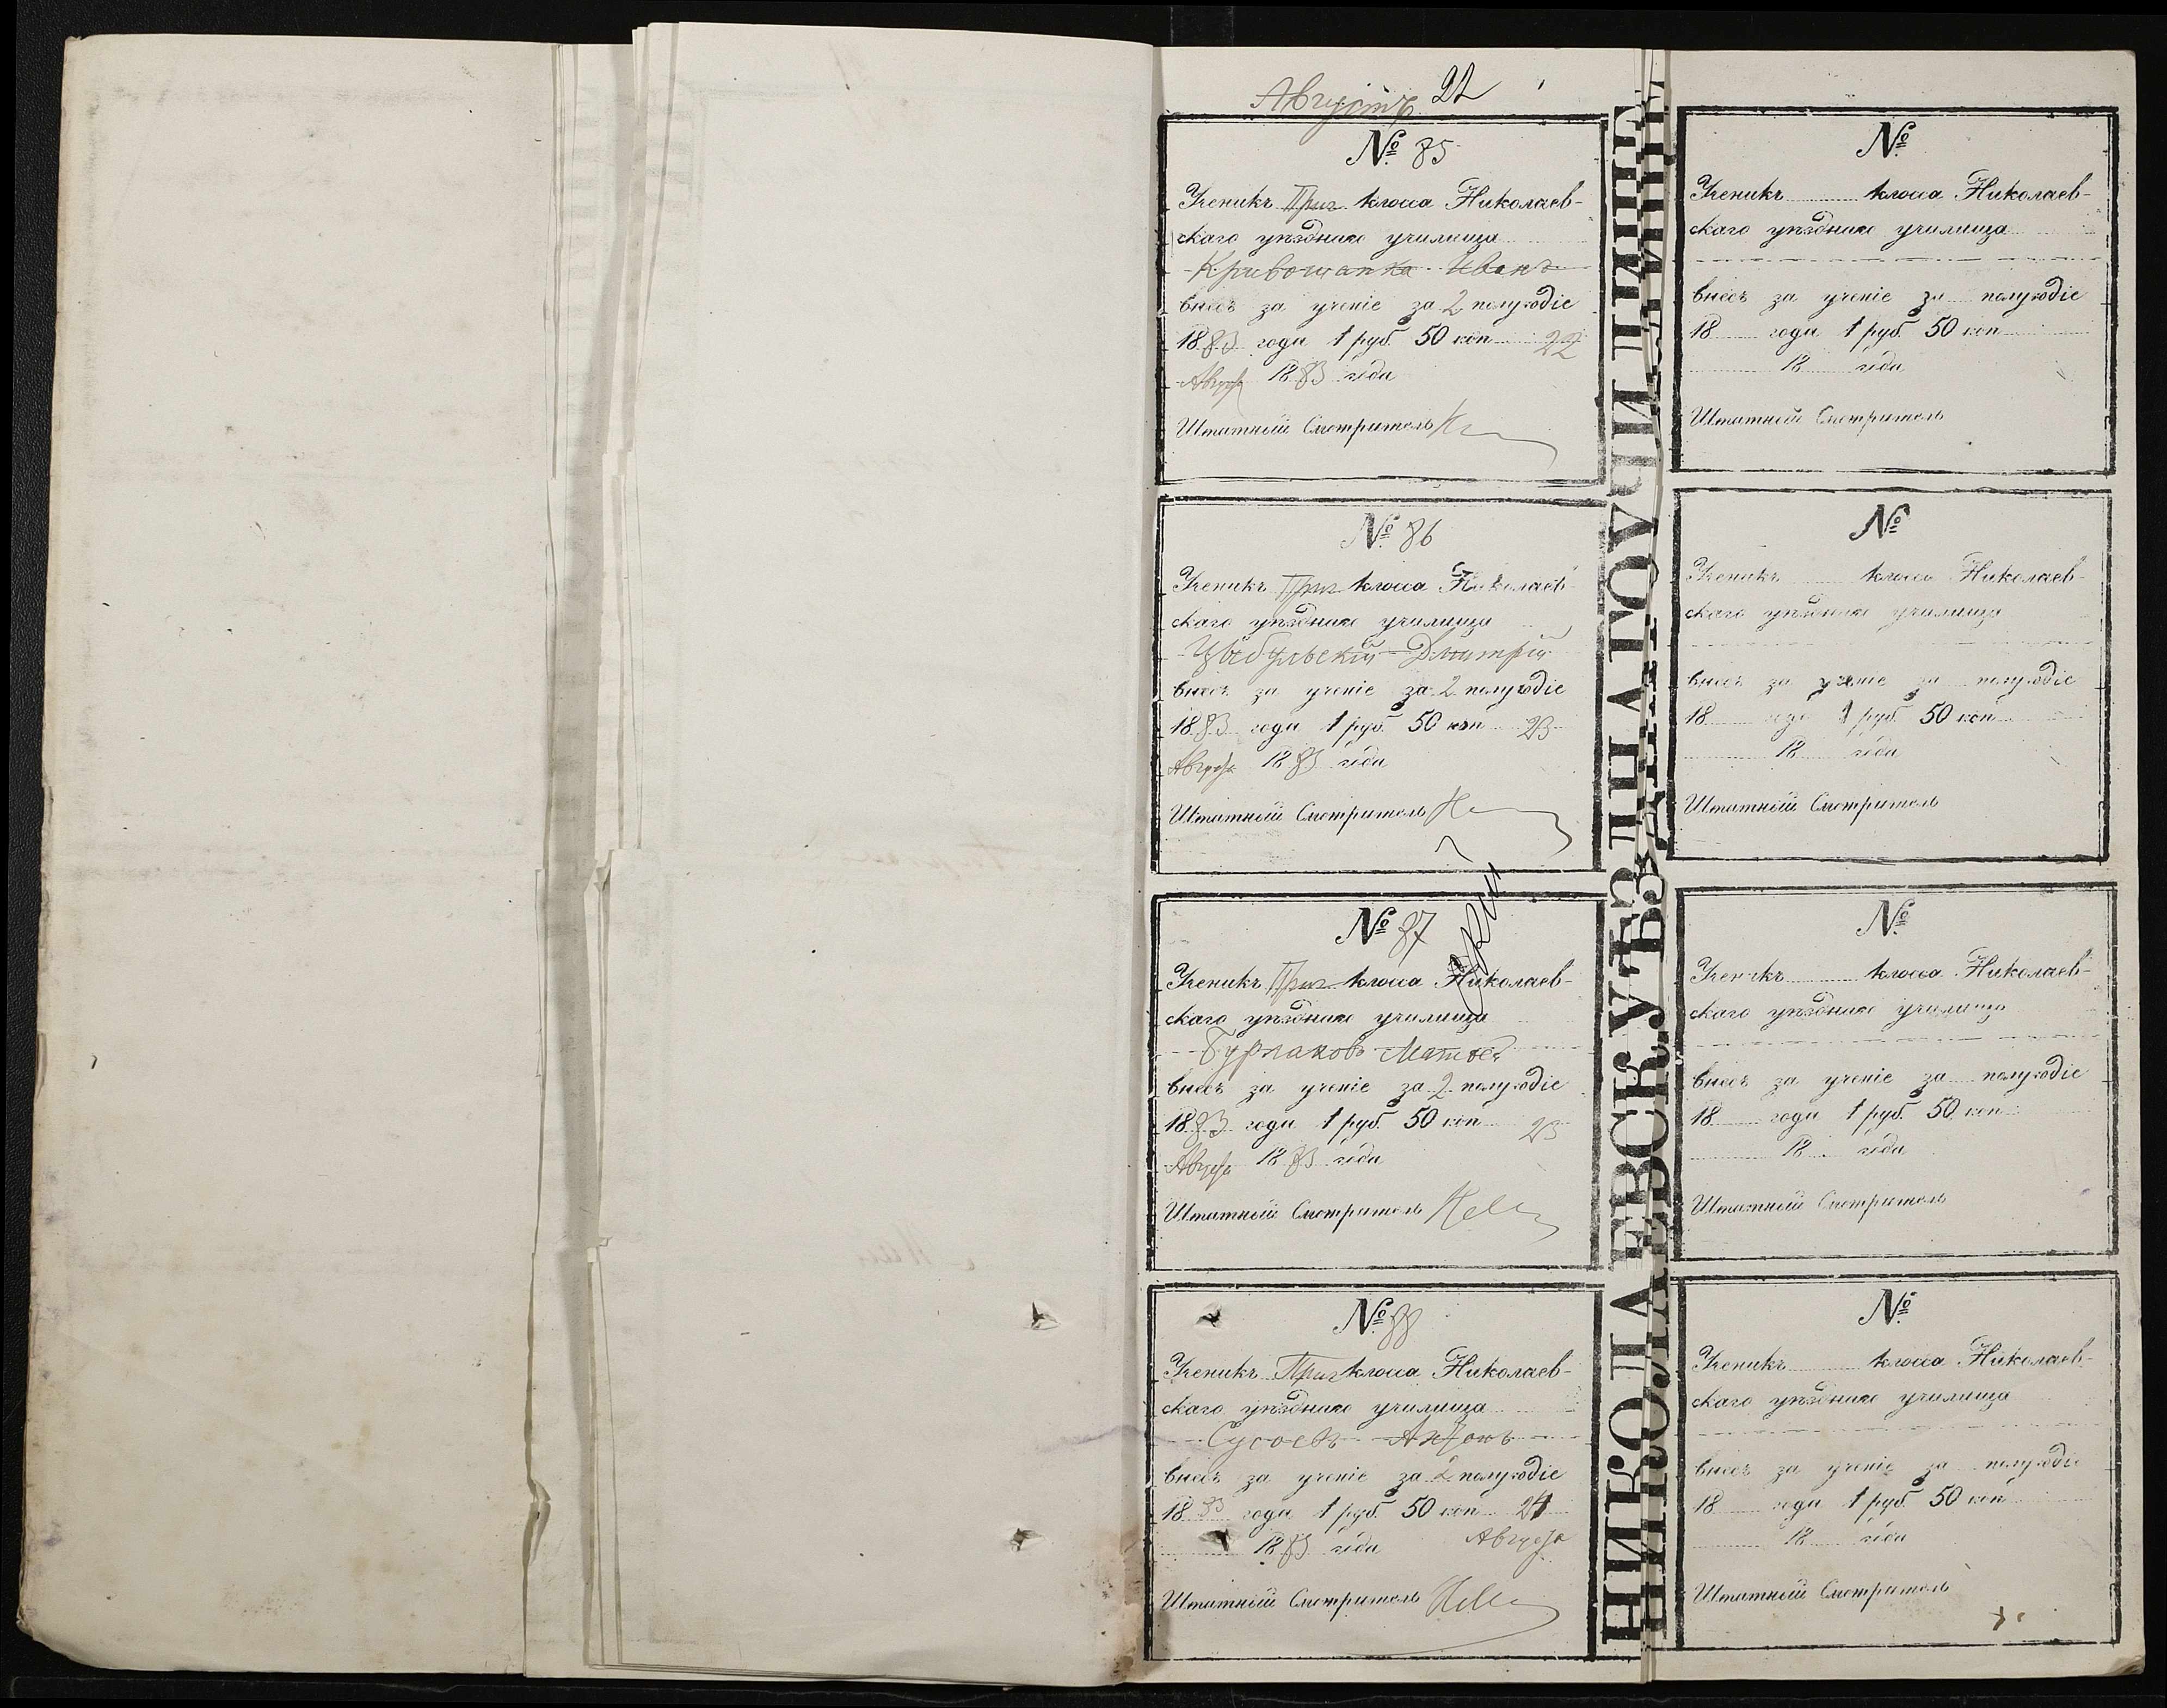 Августъ 22
№ 85
Ученикъ Приг класса Николаев-
скаго уѣзднаго училища
Кривошапка Иванъ
внесъ за ученіе за 2 полугодіе
1883 года 1 руб. 50 коп 22
Августа 1883 года
Штатный Смотритель
№ 86
Ученикъ Приг класса Николаев-
скаго уѣзднаго училища
Цыбульскій Дмитрій
внесъ за ученіе за 2 полугодіе
1883 года 1 руб. 50 коп 23
Августа 1883 года
Штатный Смотритель
№ 87
Ученикъ Приг класса Николаев-
скаго уѣзднаго училища
Бурлаковъ Матвей
внесъ за ученіе за 2 полугодіе
1883 года 1 руб. 50 коп 23
Августа 1883 года
Штатный Смотритель
№ 88
Ученикъ Приг класса Николаев-
скаго уѣзднаго училища
Сусоевъ Антонъ
внесъ за ученіе за 2 полугодіе
1883 года 1 руб. 50 коп 24
1883 года Августа
Штатный Смотритель
НИКОЛАЕВСК.УѢЗДНАГОУЧИЛИЩЕ
№
Ученикъ класса Николаев-
скаго уѣзднаго училища
внесъ за ученіе за полугодіе
18 года 1 руб. 50 коп
18 года
Штатный Смотритель
№
Ученикъ класса Николаев-
скаго уѣзднаго училища
внесъ за ученіе за полугодіе
18 года 1 руб. 50 коп
18 года
Штатный Смотритель
№
Ученикъ класса Николаев-
скаго уѣзднаго училища
внесъ за ученіе за полугодіе
18 года 1 руб. 50 коп
18 года
Штатный Смотритель
№
Ученикъ класса Николаев-
скаго уѣзднаго училища
внесъ за ученіе за полугодіе
18 года 1 руб. 50 коп
18 года
Штатный Смотритель